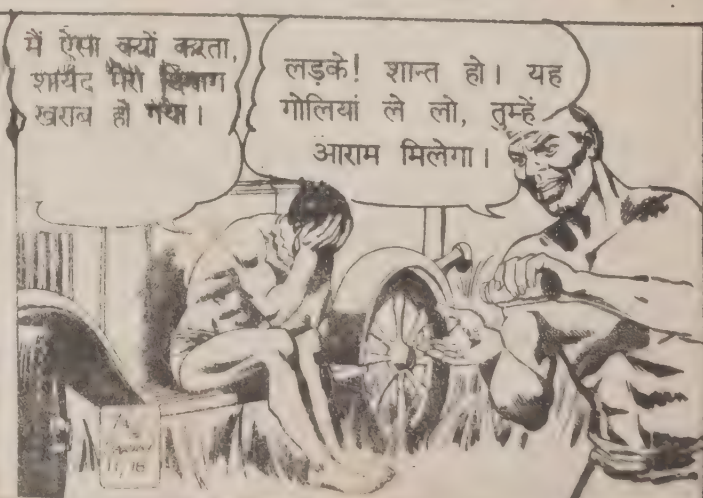 मैं ऐसा क्यों करता,
शायद मेरा दिमाग
ख़राब हो गया।
लड़के! शान्त हो। यह
गोलियां ले लो, तुम्हें
आराम मिलेगा।